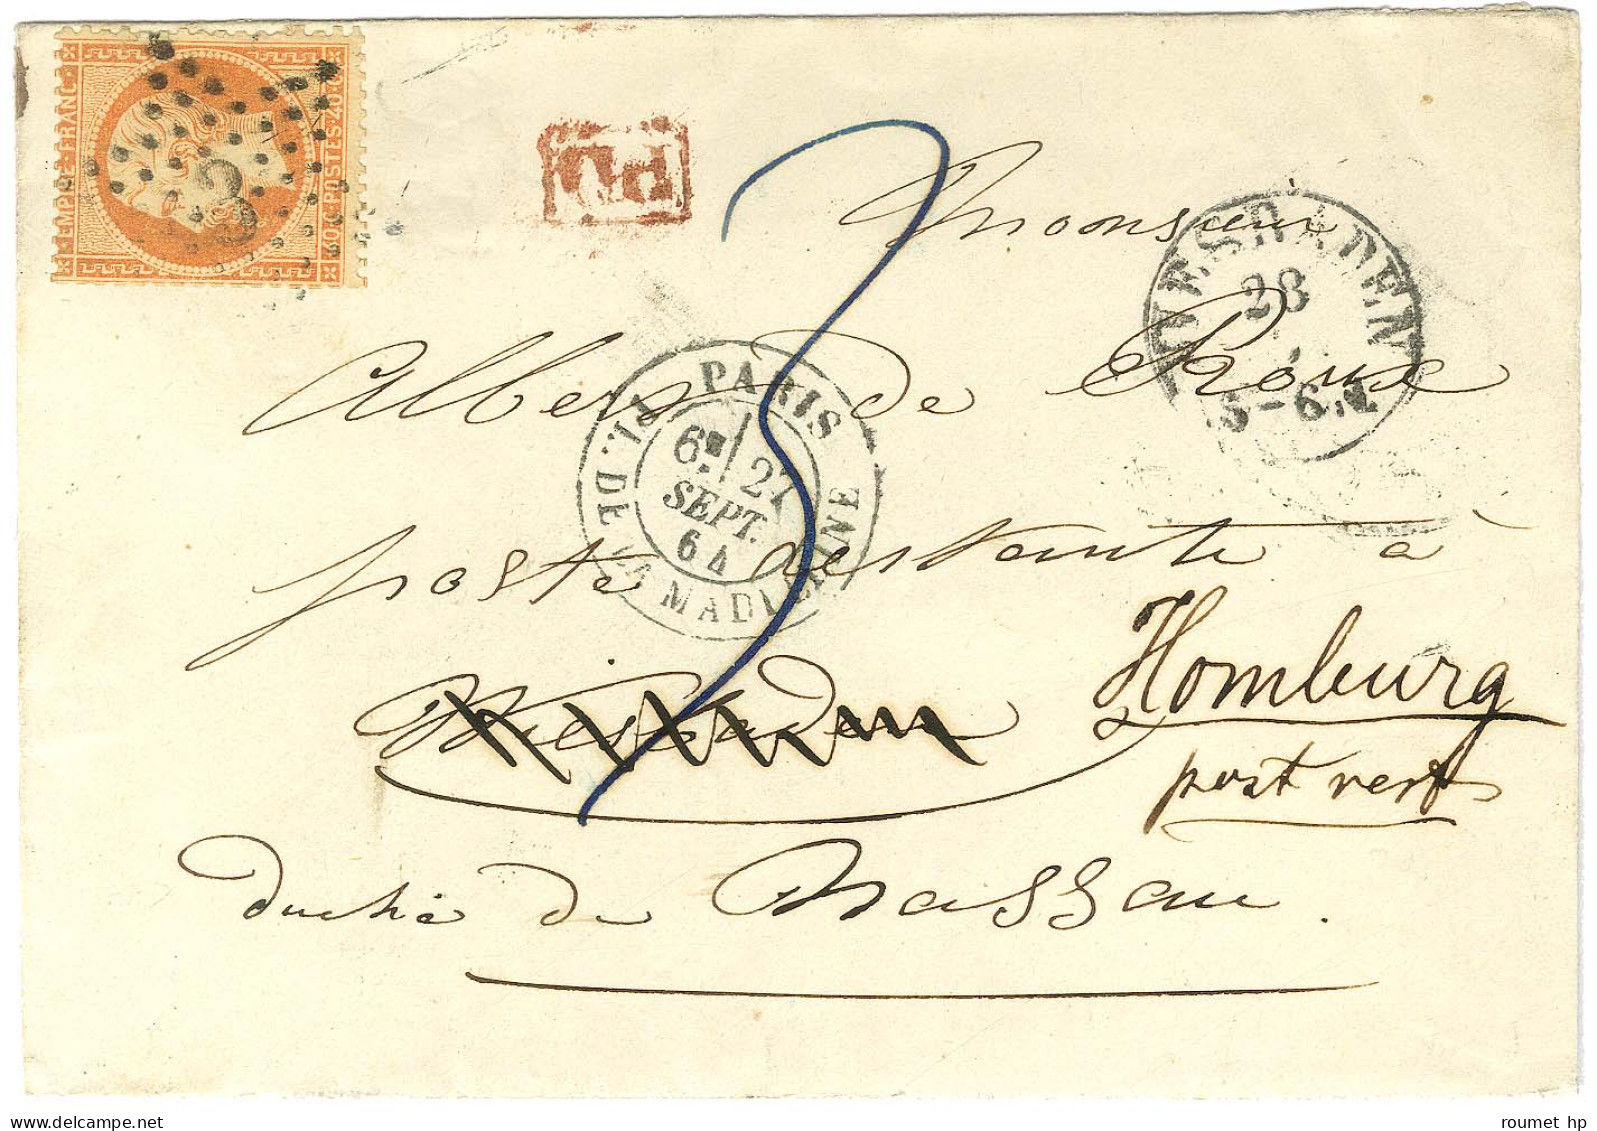 EMPIRE FRANC.
40 C. POSTES 40 C.
PD
Monsieur
WIESBADEN
28
5-6.
Albert de Roux
PARIS
PL. DE LA MADELEINE
6E 27
SEPT.
64
poste restante à
Wiesbaden Homburg
post rest
duché de Nassau.
3
roumet hp